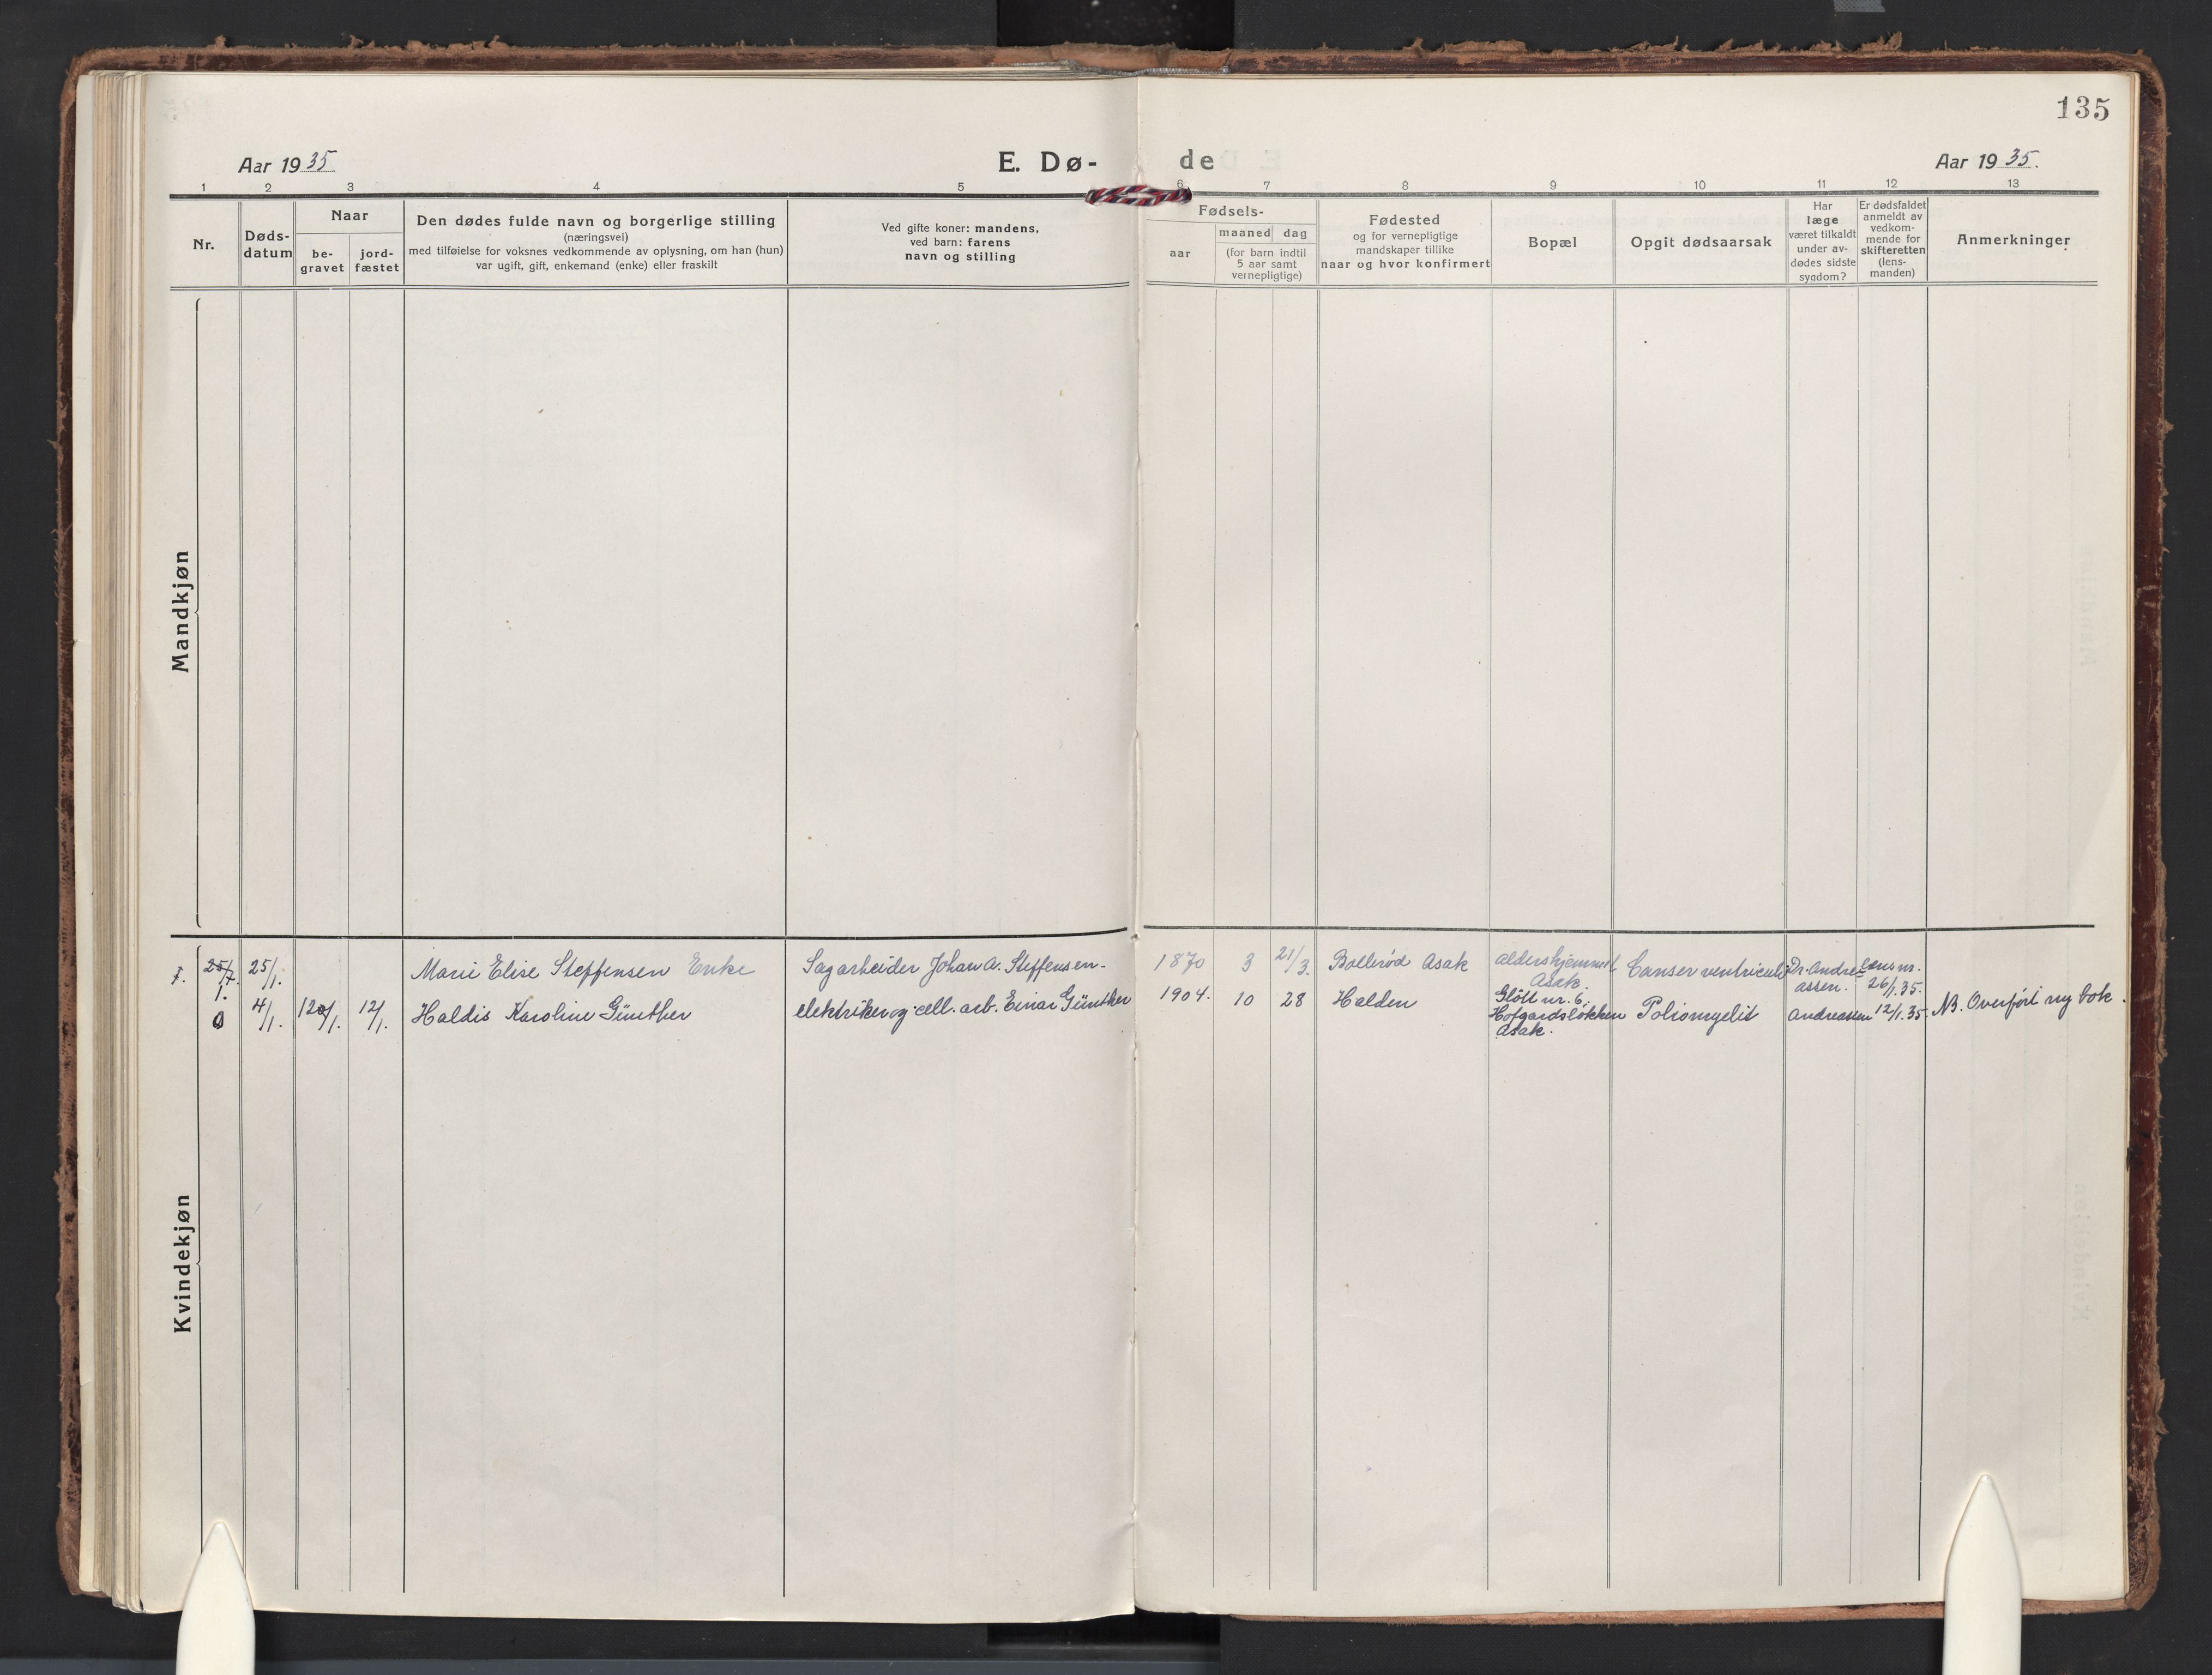 135
Aar 1935
E. Dø-
de
Aar 1935.
1 2 3 4 5 6 7 8 9 10 11 12 13
Nr.
Døds-
datum
Naar
be-
gravet
jord-
fæstet
Den dødes fulde navn og borgerlige stilling
(næringsvei)
med tilføielse for voksnes vedkommende av oplysning, om han (hun)
var ugift, gift, enkemand (enke) eller fraskilt
Ved gifte koner: mandens,
ved barn: farens
navn og stilling
Fødsels-
aar
maaned dag
(for barn indtil
5 aar samt
vernepligtige)
Fødested
og for vernepligtige
mandskaper tillike
naar og hvor konfirmert
Bopæl
Opgit dødsaarsak
Har
læge
været tilkaldt
under av-
dødes sidste
sygdom?
Er dødsfaldet
anmeldt av
vedkom-
mende for
skifteretten
(lens-
manden)
Anmerkninger
Mandkjøn
Kvindekjøn
25/1. Marie Elise Steffensen Enke Sagarbeider Johan A. Steffensen 1870 3 21/3. Bøllerød Asak
Aldershjemmet
Asak.
Canser ventriculi
Dr. Andre-
assen.
Lensm.
26/1.35.
4/1. 12/1. 12/1. Haldis Karoline Günther elektriker og cell. arb. Einar Günther 1904. 10 28 Halden
Glött nr. 6,
Hofgardsløkken
Asak.
Poliomyelit Andreassen 12/1.35. NB. Overført ny bok.